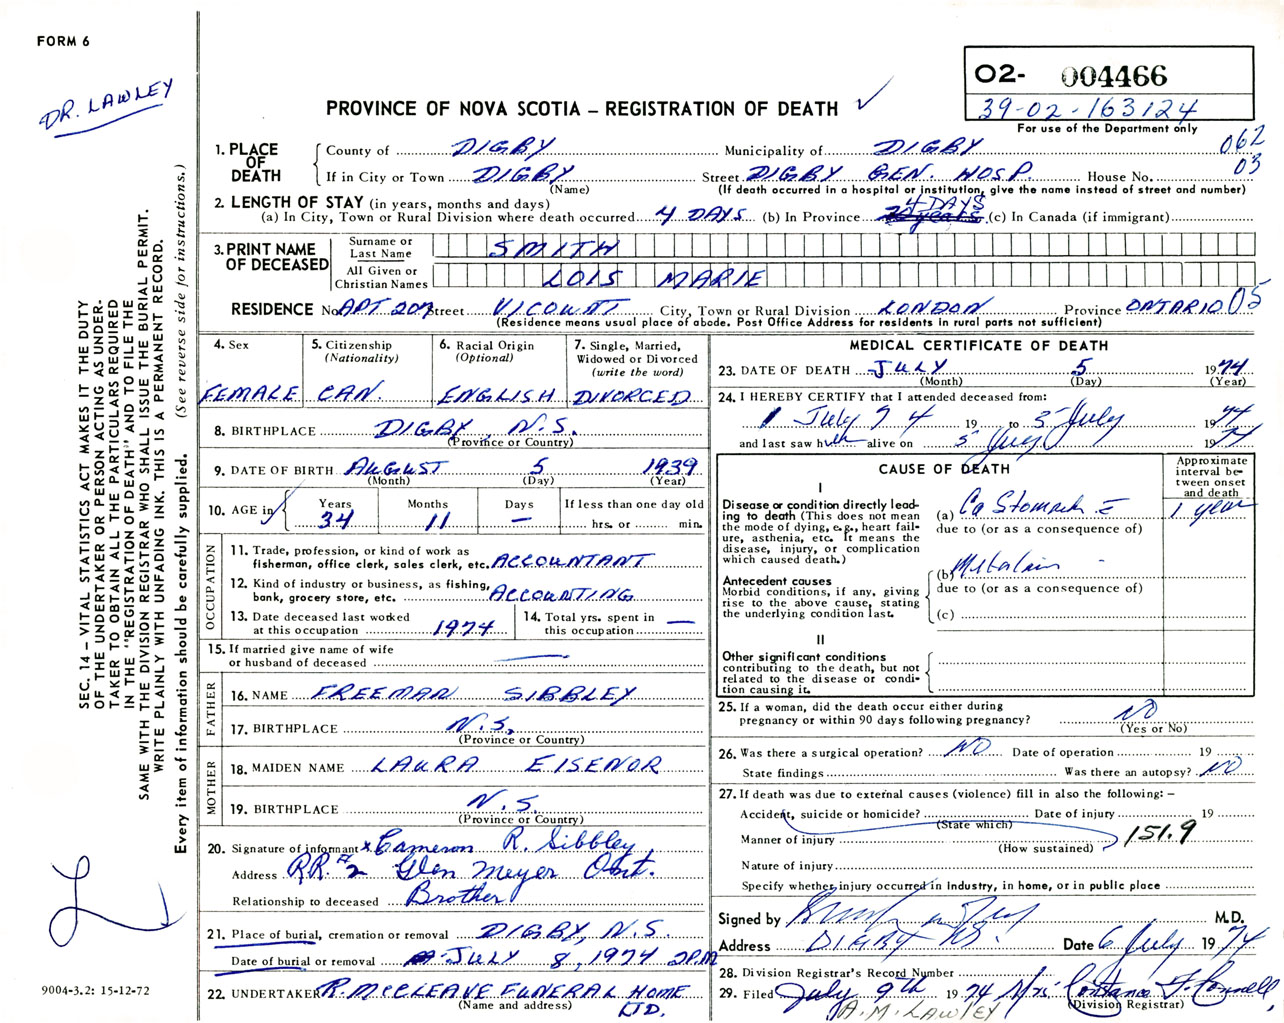 FORM 6
DR. LAWLEY
O2- 004466
39-02-163124
For use of the Department only
PROVINCE OF NOVA SCOTIA – REGISTRATION OF DEATH
062
03
1. PLACE OF DEATH
County of DIGBY Municipality of DIGBY
If in City or Town DIGBY Street DIGBY GEN. HOSP. House No.
(Name) (If death occurred in a hospital or institution, give the name instead of street and number)
2. LENGTH OF STAY (in years, months and days)
4 DAYS
(a) In City, Town or Rural Division where death occurred 4 DAYS (b) In Province (c) In Canada (if immigrant)
3. PRINT NAME OF DECEASED
Surname or Last Name SMITH
All Given or Christian Names LOIS MARIE
RESIDENCE No. APT 207 Street VICOUNT City, Town or Rural Division LONDON Province ONTARIO 05
(Residence means usual place of abode. Post Office Address for residents in rural parts not sufficient)
4. Sex
FEMALE
5. Citizenship
(Nationality)
CAN.
6. Racial Origin
(Optional)
ENGLISH
7. Single, Married,
Widowed or Divorced
(write the word)
DIVORCED
8. BIRTHPLACE DIGBY, N.S.
(Province or Country)
9. DATE OF BIRTH AUGUST 5 1939
(Month) (Day) (Year)
10. AGE in
Years Months Days If less than one day old
34 11 — hrs. or min.
OCCUPATION
11. Trade, profession, or kind of work as
fisherman, office clerk, sales clerk, etc. ACCOUNTANT
12. Kind of industry or business, as fishing,
bank, grocery store, etc. ACCOUNTING
13. Date deceased last worked
at this occupation 1974
14. Total yrs. spent in
this occupation —
15. If married give name of wife
or husband of deceased —
FATHER
16. NAME FREEMAN SIBBLEY
17. BIRTHPLACE N.S.
(Province or Country)
MOTHER
18. MAIDEN NAME LAURA EISENOR
19. BIRTHPLACE N.S.
(Province or Country)
20. Signature of informant x Cameron R. Sibbley
Address RR. #2 Glen Meyer Ont.
Relationship to deceased Brother
21. Place of burial, cremation or removal DIGBY, N.S.
Date of burial or removal JULY 8, 1974 2PM
22. UNDERTAKER R. MCCLEAVE FUNERAL HOME
(Name and address) LTD.
MEDICAL CERTIFICATE OF DEATH
23. DATE OF DEATH JULY 5 1974
(Month) (Day) (Year)
24. I HEREBY CERTIFY that I attended deceased from:
1 July 74 19 to 5 July 1974
and last saw her alive on 5 July 1974
CAUSE OF DEATH
Approximate
interval be-
tween onset
and death
I
Disease or condition directly lead-
ing to death (This does not mean
the mode of dying, e.g., heart fail-
ure, asthenia, etc. It means the
disease, injury, or complication
which caused death.)
(a) Ca Stomach 1 year
due to (or as a consequence of)
Antecedent causes
Morbid conditions, if any, giving
rise to the above cause, stating
the underlying condition last.
(b)
due to (or as a consequence of)
(c)
II
Other significant conditions
contributing to the death, but not
related to the disease or condi-
tion causing it.
25. If a woman, did the death occur either during
pregnancy or within 90 days following pregnancy? NO
(Yes or No)
26. Was there a surgical operation? NO Date of operation 19
State findings Was there an autopsy? NO
27. If death was due to external causes (violence) fill in also the following: –
Accident, suicide or homicide? Date of injury 19
(State which)
Manner of injury 151.9
(How sustained)
Nature of injury
Specify whether injury occurred in Industry, in home, or in public place
Signed by M.D.
Address DIGBY NS. Date 6 July 1974
28. Division Registrar's Record Number
29. Filed July 9th 1974 Mrs Constance F. Connell
(Division Registrar)
A.M. LAWLEY
SEC. 14 – VITAL STATISTICS ACT MAKES IT THE DUTY
OF THE UNDERTAKER OR PERSON ACTING AS UNDER-
TAKER TO OBTAIN ALL THE PARTICULARS REQUIRED
IN THE "REGISTRATION OF DEATH" AND TO FILE THE
SAME WITH THE DIVISION REGISTRAR WHO SHALL ISSUE THE BURIAL PERMIT.
WRITE PLAINLY WITH UNFADING INK. THIS IS A PERMANENT RECORD.
Every item of information should be carefully supplied. (See reverse side for instructions.)
9004-3.2: 15-12-72